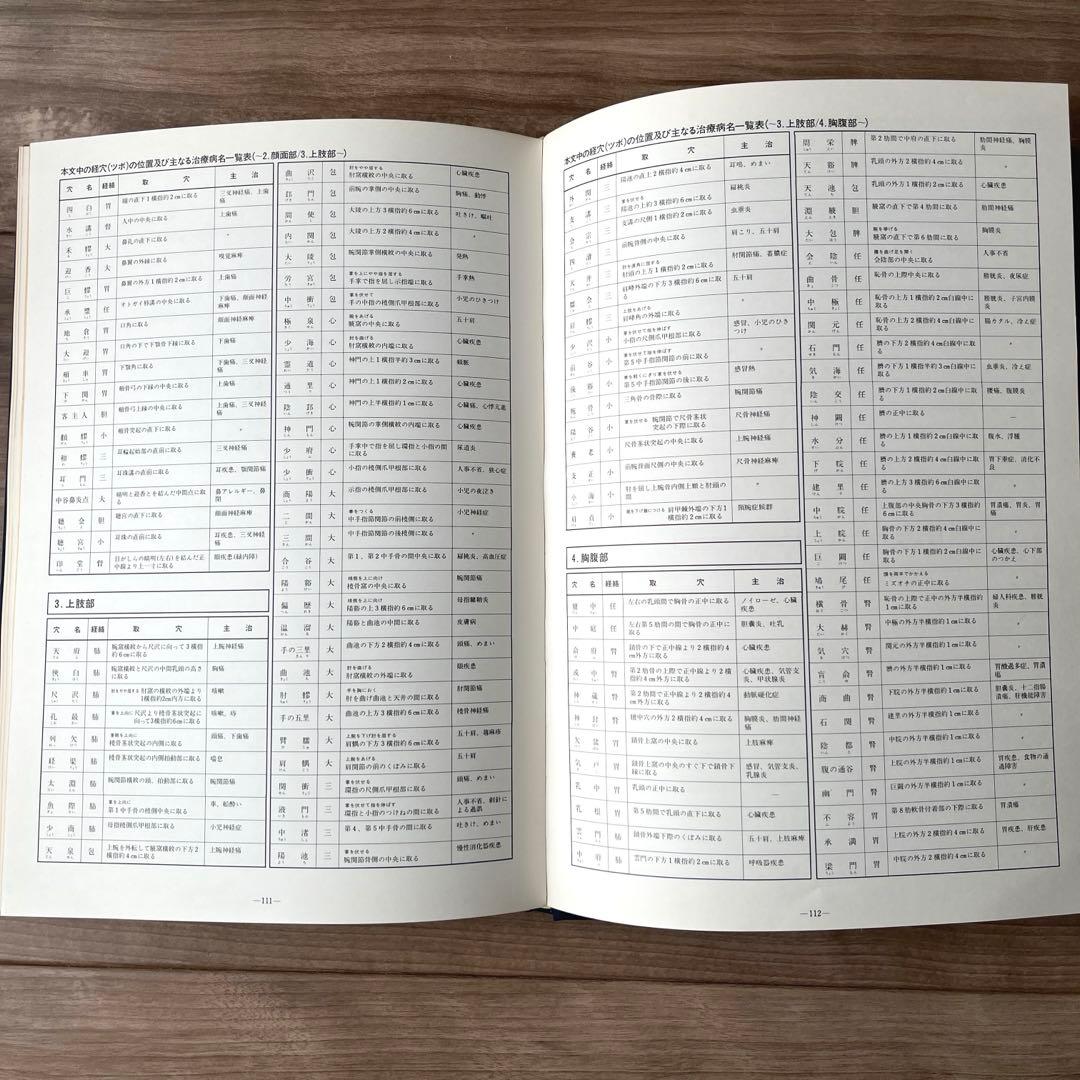 本文中の経穴(ツボ)の位置及び主なる治療病名一覧表(〜2.顔面部/3.上肢部〜)
穴名 経絡 取穴 主治
四白 胃 瞳の直下1横指約2cmに取る 三叉神経痛、上歯痛
水溝 督 人中の中央に取る 上歯痛
禾髎 大 鼻孔の直下に取る 〃
迎香 大 鼻翼の外縁に取る 嗅覚麻痺
巨髎 胃 鼻翼の外方1横指約2cmに取る 上歯痛
承漿 任 オトガイ唇溝の中央に取る 下歯痛、顔面神経麻痺
地倉 胃 口角に取る 顔面神経麻痺
大迎 胃 口角の下で下顎骨下縁に取る 下歯痛
頬車 胃 下顎角に取る 下歯痛、三叉神経痛
下関 胃 頬骨弓下縁の中央に取る 上歯痛
客主人 胆 頬骨弓上縁の中央に取る 上歯痛、三叉神経痛
顴髎 小 頬骨突起の直下に取る 〃
和髎 三 耳輪起始部の直前に取る 三叉神経痛
耳門 三 耳珠溝の直前に取る 耳疾患、顎関節痛
中谷鼻炎点 大 睛明と迎香とを結んだ中間点に取る 鼻アレルギー、鼻閉
聴会 胆 聴宮の直下に取る 顔面神経麻痺
聴宮 小 耳珠の直前に取る 耳疾患、三叉神経痛
印堂 督 目がしらの睛明(左右)を結んだ正中線より上一寸に取る 眼疾患(緑内障)
3.上肢部
穴名 経絡 取穴 主治
天府 肺 腕窩横紋から尺沢に向って3横指約6cmに取る 上腕神経痛
侠白 肺 腋窩横紋と尺沢の中間乳頭の高さに取る 胸痛
尺沢 肺 肘をやや屈する 肘窩の横紋の外端より1横指約2cm内方に取る 咳嗽
孔最 肺 掌を上向に尺沢より橈骨茎状突起に向って3横指約6cmに取る 咳嗽、痔
列欠 肺 掌側を上に向け 橈骨茎状突起の内側に取る 頭痛、下歯痛
経渠 肺 橈骨茎状突起の内側拍動部に取る 喘息
太淵 肺 腕関節横紋の頭、拍動部に取る 腕関節痛
魚際 肺 掌を上向に 第1中手骨の橈側中央に取る 車、船酔い
少商 肺 母指橈側爪甲根部に取る 小児神経症
天泉 包 上腕を外転して腋窩横紋の下方2横指約4cmに取る 上腕神経痛
曲沢 包 肘をやや屈する 肘窩横紋の中央に取る 心臓疾患
郄門 包 前腕の掌側の中央に取る 胸痛、動悸
間使 包 大陵の上方3横指約6cmに取る 吐きけ、嘔吐
内関 包 大陵の上方2横指約4cmに取る 〃
大陵 包 腕関節掌側横紋の中央に取る 発熱
労宮 包 掌を上にやや指を屈する 手掌で指を屈し示指端に取る 手掌熱
中衝 包 掌を伏せて 手の中指の橈側爪甲根部に取る 小児のひきつけ
極泉 心 腕をあげる 腋窩の中央に取る 五十肩
少海 心 肘を曲げる 肘窩横紋の内端に取る 心臓疾患
霊道 心 神門の上1横指半約3cmに取る
通里 心 神門の上1横指約2cmに取る 心臓疾患
陰郄 心 神門の上半横指約1cmに取る 心臓痛、心悸亢進
神門 心 腕関節の掌側横紋の内端に取る 心臓疾患
少府 心 手掌中で指を屈し環指と小指の間に取る 尿道炎
少衝 心 小指の橈側爪甲根部に取る 人事不省、狭心症
商陽 大 示指の橈側爪甲根部に取る 小児の夜泣き
二間 大 掌をつくる 中手指節関節の前橈側に取る 小児神経症
三間 大 中手指節関節の後橈側に取る 〃
合谷 大 第1、第2中手骨の間中央に取る 扁桃炎、高血圧症
陽谿 大 橈側を上に向け 橈骨窩の中央に取る 腕関節痛
偏歴 大 橈側を上に向け 陽谿の上3横指約6cmに取る 母指腱鞘炎
温溜 大 陽谿と曲池の中間に取る 皮膚病
手の三里 大 曲池の下方2横指約4cmに取る 頭痛、めまい
曲池 大 肘を曲げる 肘窩横紋の外端に取る 眼疾患
肘髎 大 手を胸におく 肘を曲げ曲池と天井の間に取る 肘関節痛
手の五里 大 曲池の上方3横指約6cmに取る 橈骨神経痛
臂臑 大 上腕を下げ肘を屈する 肩髃の下方3横指約6cmに取る 五十肩、蕁麻疹
肩髃 大 上腕をあげる 肩関節の前のくぼみに取る 五十肩
関衝 三 掌を伏せる 環指の尺側爪甲根部に取る 頭痛、めまい
液門 三 掌を伏せて指を伸ばす 環指と小指のつけねの間に取る 人事不省、刺針による過誤
中渚 三 第4、第5中手骨の間に取る 吐きけ、めまい
陽池 三 掌を伏せる 腕関節背側の中央に取る 慢性消化器疾患
―111―
本文中の経穴(ツボ)の位置及び主なる治療病名一覧表(〜3.上肢部/4.胸腹部〜)
穴名 経絡 取穴 主治
外関 三 陽池の直上2横指約4cmに取る 耳鳴、めまい
支溝 三 掌を伏せる 陽池の上約3横指約6cmに取る 扁桃炎
会宗 三 支溝の尺側1横指約2cmに取る 虫垂炎
四瀆 三 前腕背側の中央に取る 肩こり、五十肩
天井 三 肘を直角に屈する 肘頭の上方1横指約2cmに取る 肘関節痛、蓄膿症
臑会 三 肩峰外端の下方3横指約6cmに取る 五十肩
肩髎 三 上肢をあげる 肩峰角の外端に取る 〃
少沢 小 掌を伏せて指を伸ばす 小指の尺側爪甲根部に取る 感冒、小児のひきつけ
前谷 小 掌を伏せて指を伸ばす 第5中手指節関節の前に取る 〃
後谿 小 掌を軽くにぎり掌を伏せて 第5中手指節関節の後に取る 感冒熱
腕骨 小 三角骨の骨際に取る 腕関節痛
陽谷 小 掌を伏せる 腕関節で尺骨茎状突起の下際に取る 尺骨神経痛
養老 小 尺骨茎状突起の中央に取る 上腕神経痛
支正 小 前腕背面尺側の中央に取る 尺骨神経麻痺
小海 小 肘を屈し上腕骨内側上顆と肘頭の間に取る 〃
肩貞 小 腕を下げ腋につける 肩甲棘外端の下方1横指約2cmに取る 頸腕症候群
4.胸腹部
穴名 経絡 取穴 主治
膻中 任 左右の乳頭間で胸骨の正中に取る ノイローゼ、心臓疾患
中庭 任 左右第5肋間の間で胸骨の正中に取る 胆嚢炎、吐乳
兪府 腎 鎖骨の下で正中線より2横指約4cm外方に取る 心臓疾患
彧中 腎 第2肋骨の上際で正中線より2横指約4cm外方に取る 心臓疾患、気管支炎、甲状腺炎
神蔵 腎 第2肋間で正中線より2横指約4cm外方に取る 動脈硬化症
神封 腎 膻中穴の外方2横指約4cmに取る 胸膜炎、肋間神経痛
欠盆 胃 鎖骨上窩の中央に取る 上肢麻痺
気戸 胃 鎖骨上窩の中央のすぐ下で鎖骨下縁に取る 感冒、気管支炎、乳腺炎
乳中 胃 乳頭の正中に取る ―
乳根 胃 第5肋間で乳頭の直下に取る 心臓疾患
雲門 肺 鎖骨外端下際のくぼみに取る 五十肩、上肢麻痺
中府 肺 雲門の下方1横指約2cmに取る 呼吸器疾患
周栄 脾 第2肋間で中府の直下に取る 肋間神経痛、胸膜炎
天谿 脾 乳頭の外方2横指約4cmに取る 〃
天池 包 乳頭の外方1横指約2cmに取る 心臓疾患
淵腋 胆 腋窩の直下で第4肋間に取る 肋間神経痛
大包 脾 腕を挙げる 腋窩の直下で第6肋間に取る 胸膜炎
会陰 任 膝を曲げ足を開く 会陰部の中央に取る 人事不省
曲骨 任 恥骨の上際中央に取る 膀胱炎、夜尿症
中極 任 恥骨の上方1横指約2cm白線中に取る 膀胱炎、子宮内膜炎
関元 任 恥骨の上方2横指約4cm白線中に取る 腸カタル、冷え症
石門 任 臍の下方2横指約4cm白線中に取る 〃
気海 任 臍の下方1横指半約3cm白線中に取る 虫垂炎、冷え症
陰交 任 臍の下方1横指約2cm白線中に取る 腰痛、腹膜炎
神闕 任 臍の正中に取る ―
水分 任 臍の上方1横指約2cm白線中に取る 腹水、浮腫
下脘 任 臍の上方2横指約4cm白線中に取る 胃下垂症、消化不良
建里 任 臍の上方3横指約6cm白線中に取る 〃
中脘 任 上腹部の中央胸骨の下方3横指約6cmに取る 胃潰瘍、胃炎
上脘 任 胸骨の下方2横指約4cm白線中に取る 〃
巨闕 任 胸骨の下方1横指約2cm白線中に取る 心臓疾患、心下部のつかえ
鳩尾 任 頭を両手でかかえる ミズオチの正中に取る 〃
横骨 腎 恥骨の上際で正中の外方半横指約1cmに取る 婦人科疾患、膀胱炎
大赫 腎 中極の外方半横指約1cmに取る 〃
気穴 腎 関元の外方半横指約1cmに取る 〃
肓兪 腎 臍の外方半横指約1cmに取る 胃酸過多症、胃潰瘍
商曲 腎 下脘の外方半横指約1cmに取る 胆嚢炎、十二指腸潰瘍、肝機能障害
石関 腎 建里の外方半横指約1cmに取る 〃
陰都 腎 中脘の外方半横指約1cmに取る 〃
腹の通谷 腎 上脘の外方半横指約1cmに取る 胃疾患、食物の通過障害
幽門 腎 巨闕の外方半横指約1cmに取る 〃
不容 胃 第8肋軟骨付着部の下際に取る 胃潰瘍
承満 胃 上脘の外方2横指約4cmに取る 胃疾患、肝疾患
梁門 胃 中脘の外方2横指約4cmに取る 〃
―112―